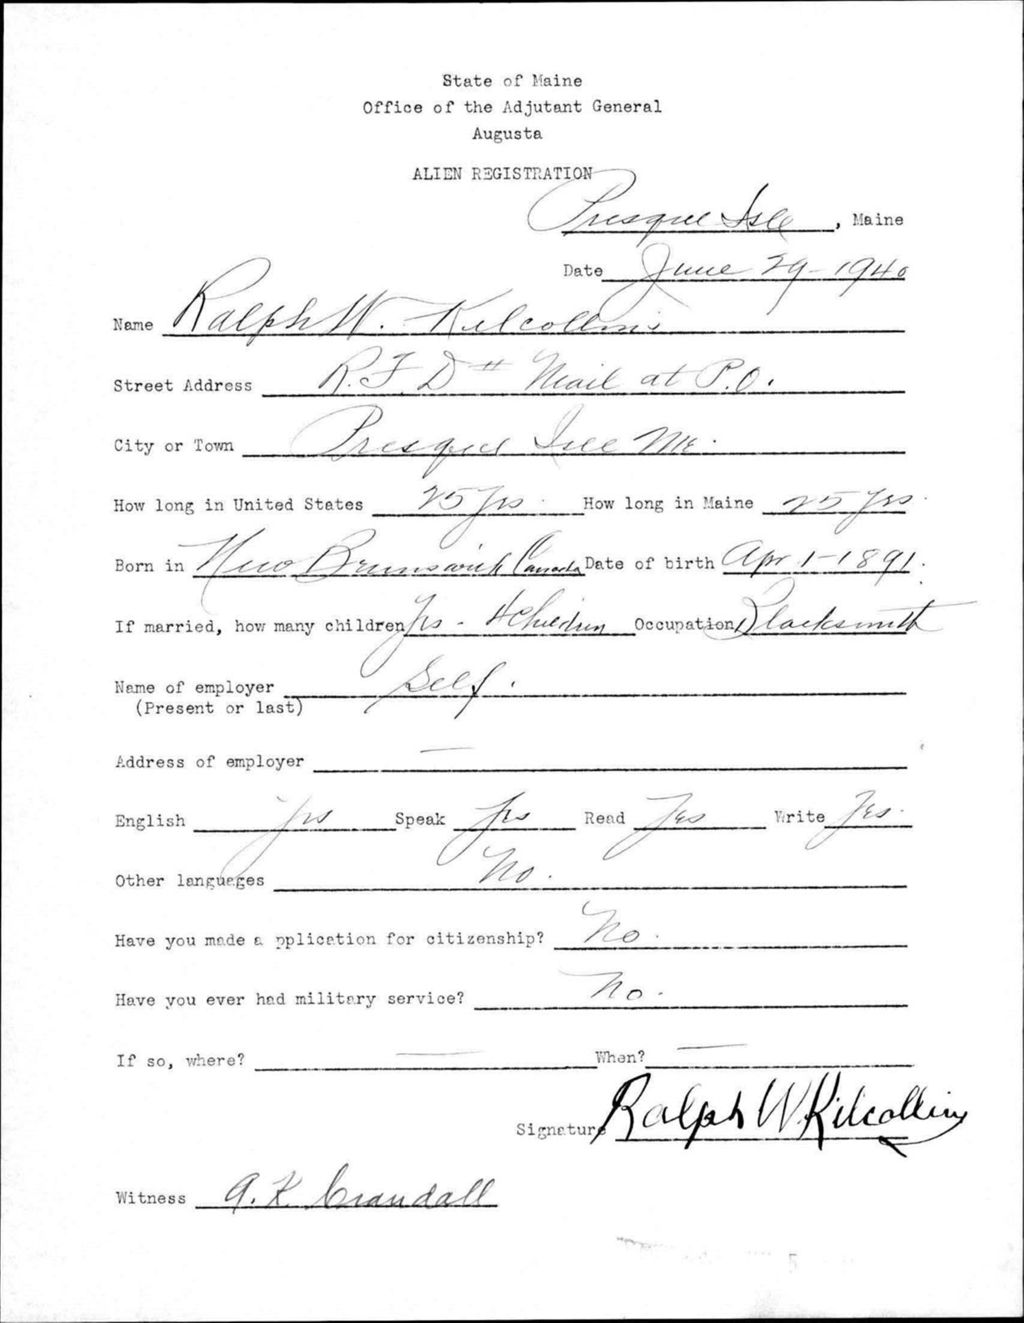 State of Maine
Office of the Adjutant General
Augusta
ALIEN REGISTRATION
Presque Isle, Maine
Date June 29-1940
Name Ralph W. Kilcollins
Street Address R.F.D # Mail at P.O.
City or Town Presque Isle Me.
How long in United States 25 yrs. How long in Maine 25 yrs.
Born in New Brunswick Canada Date of birth Apr 1-1891.
If married, how many children Yes - 4 Children Occupation Blacksmith
Name of employer Self.
(Present or last)
Address of employer —
English Yes Speak Yes Read Yes Write Yes.
Other languages No.
Have you made a pplication for citizenship? No.
Have you ever had military service? No.
If so, where? — When? —
Signature Ralph W Kilcollins
Witness A. K. Crandall